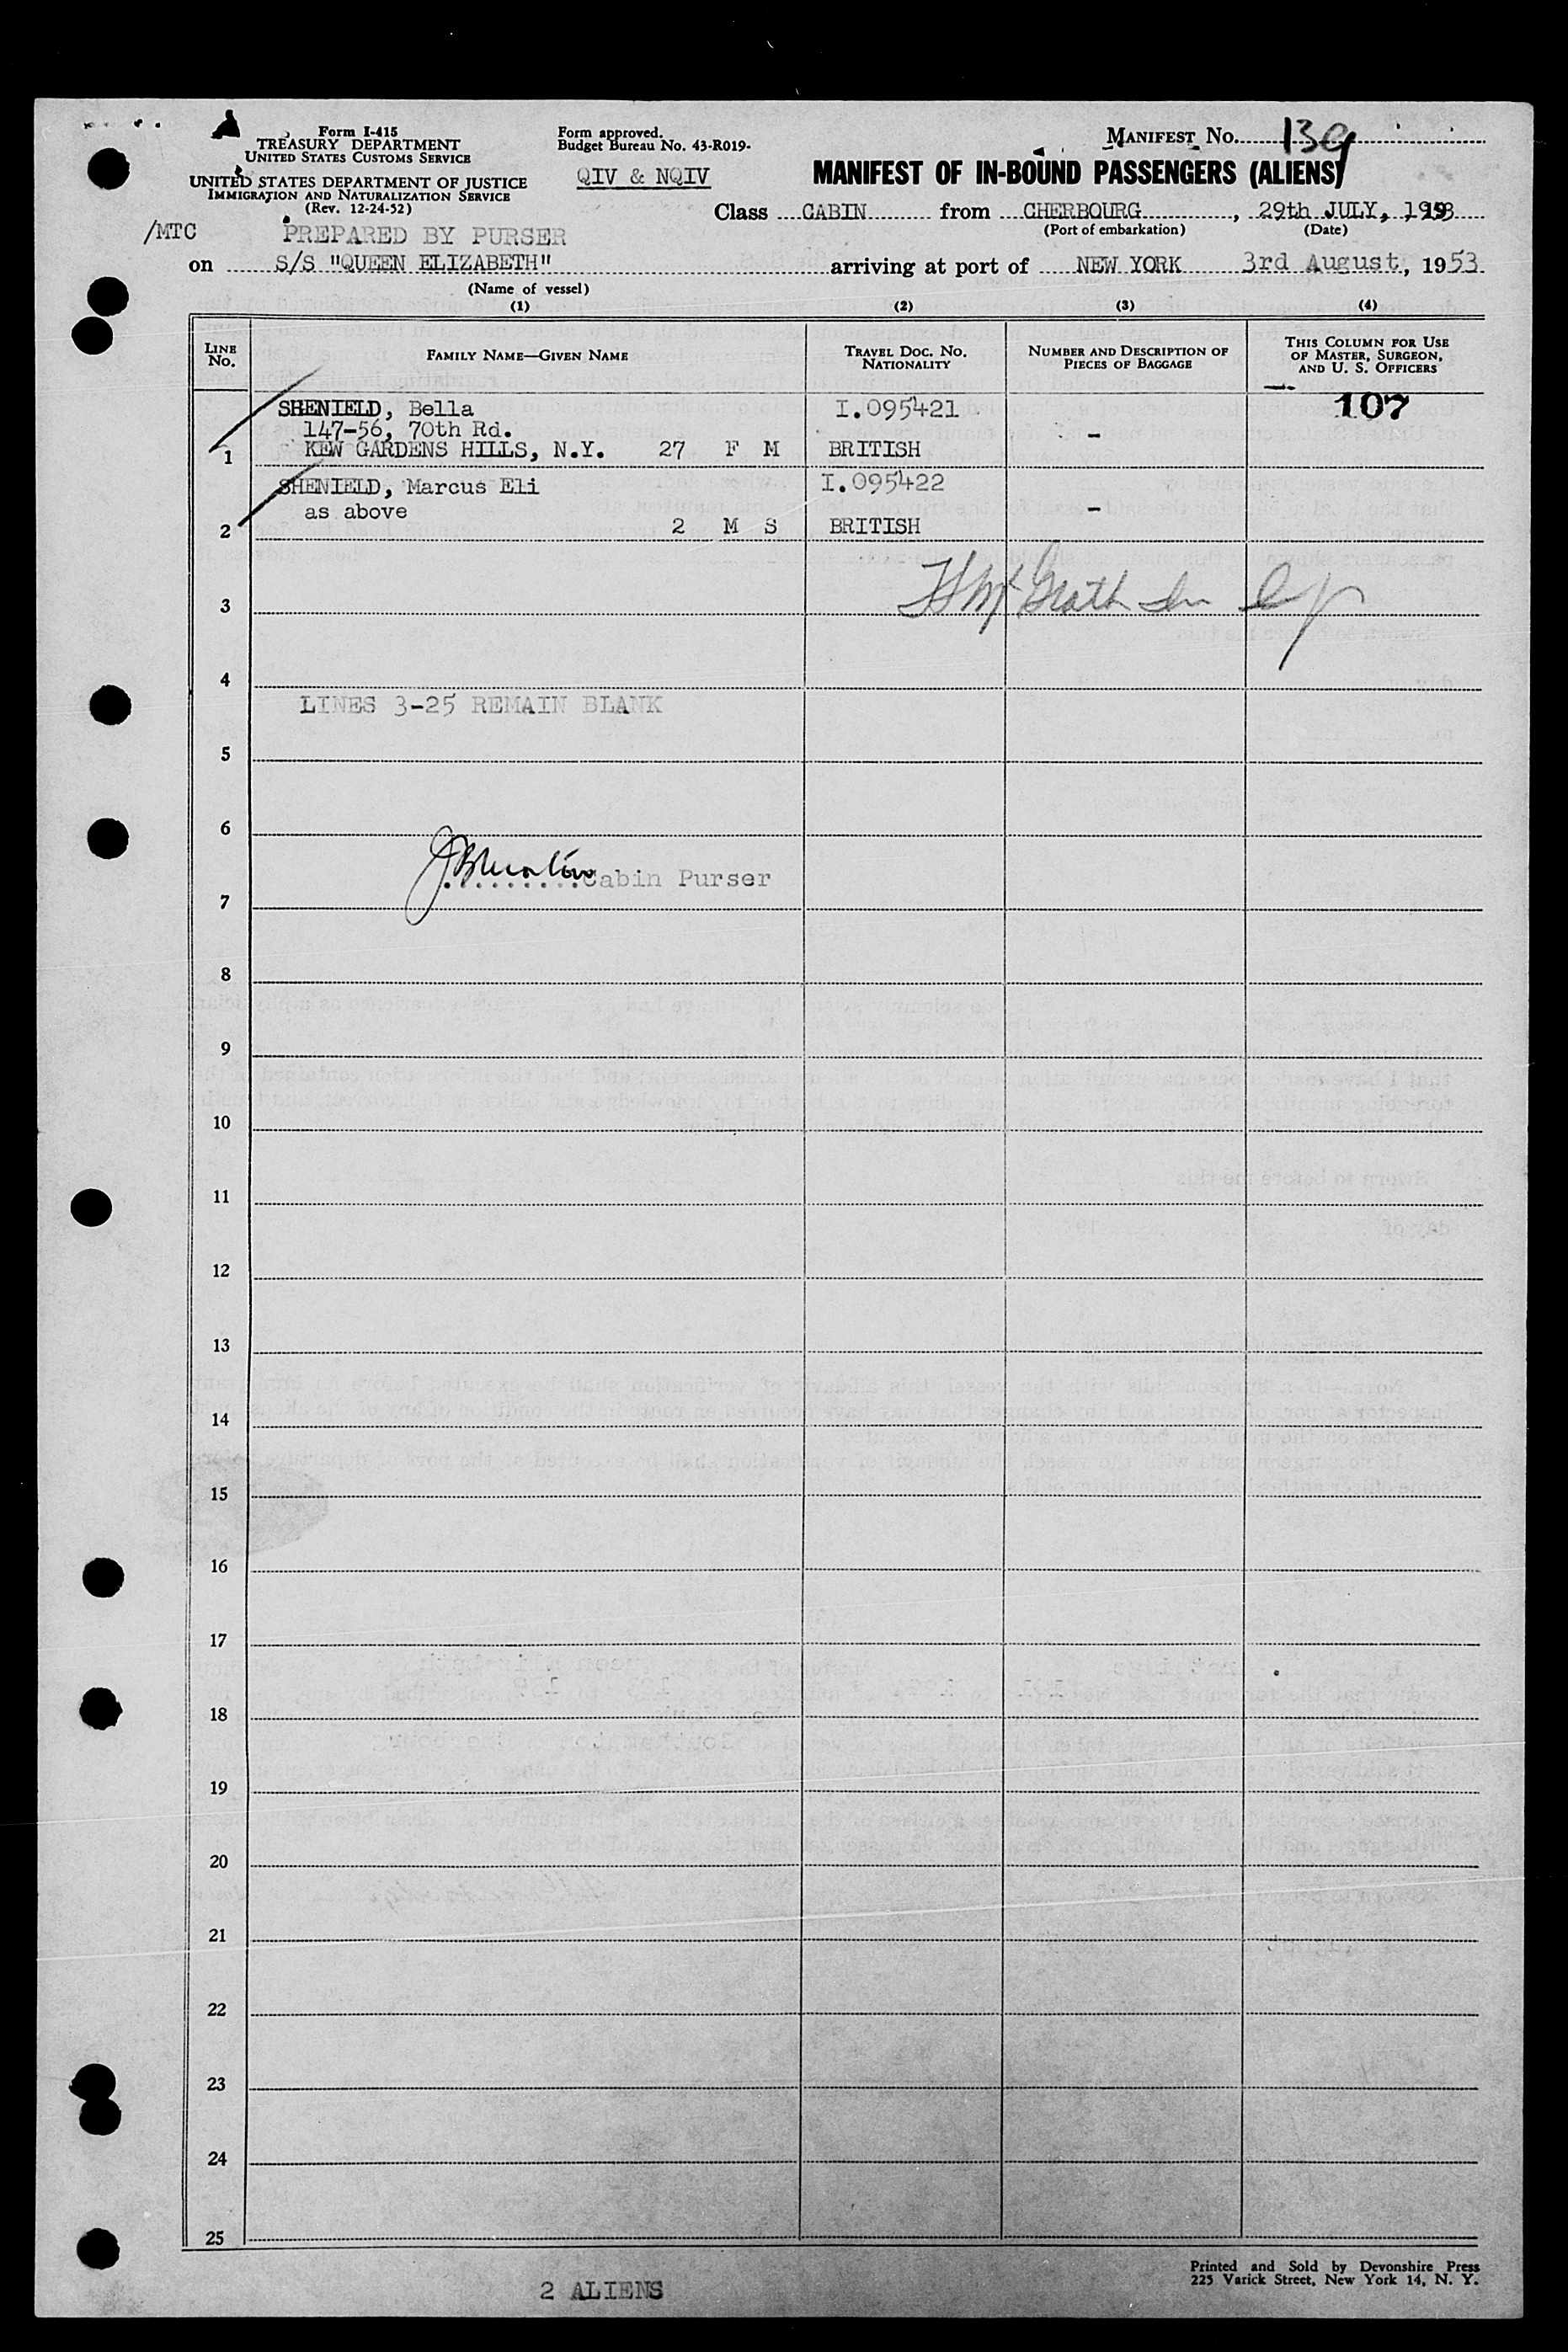 Form I-415
TREASURY DEPARTMENT
UNITED STATES CUSTOMS SERVICE
UNITED STATES DEPARTMENT OF JUSTICE
IMMIGRATION AND NATURALIZATION SERVICE
(Rev. 12-24-52)
Form approved.
Budget Bureau No. 43-R019-
QIV & NQIV
MANIFEST No. 139
MANIFEST OF IN-BOUND PASSENGERS (ALIENS)
Class CABIN from CHERBOURG, 29th JULY, 1953
(Port of embarkation) (Date)
/MTC PREPARED BY PURSER
on S/S "QUEEN ELIZABETH" arriving at port of NEW YORK 3rd August, 1953
(Name of vessel)
(1) (2) (3) (4)
LINE No. FAMILY NAME—GIVEN NAME TRAVEL DOC. NO. NATIONALITY NUMBER AND DESCRIPTION OF PIECES OF BAGGAGE THIS COLUMN FOR USE OF MASTER, SURGEON, AND U. S. OFFICERS
SHENIELD, Bella I.095421 107
147-56, 70th Rd. -
1 KEW GARDENS HILLS, N.Y. 27 F M BRITISH
SHENIELD, Marcus Eli I.095422
as above -
2 2 M S BRITISH
3
4
LINES 3-25 REMAIN BLANK
5
6
Cabin Purser
7
8
9
10
11
12
13
14
15
16
17
18
19
20
21
22
23
24
25
2 ALIENS
Printed and Sold by Devonshire Press
225 Varick Street, New York 14, N. Y.